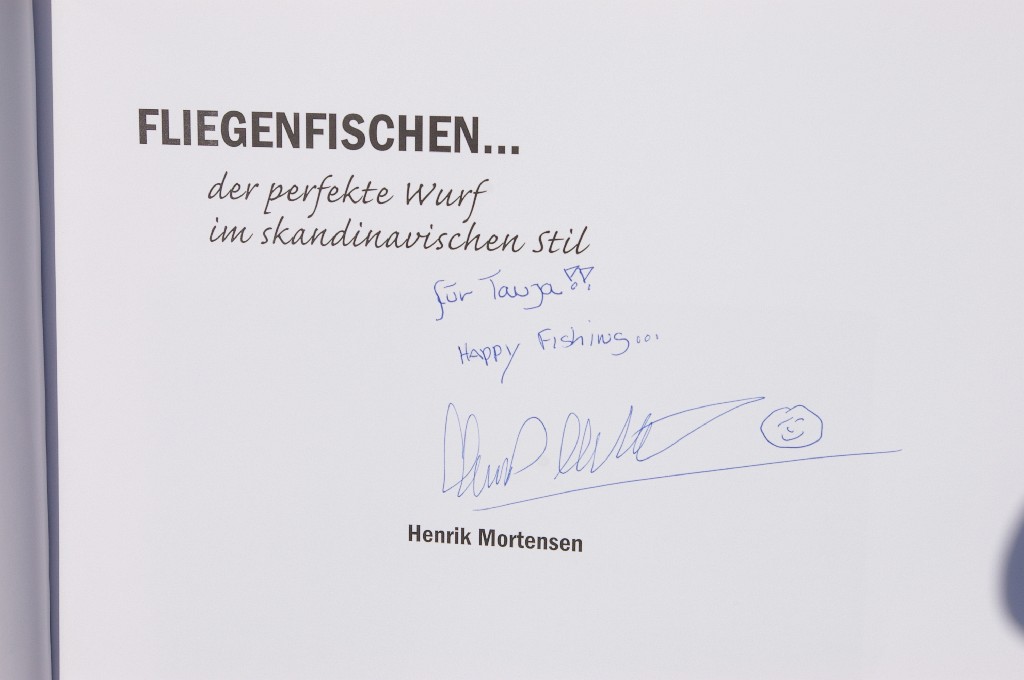 FLIEGENFISCHEN...
der perfekte Wurf
im skandinavischen Stil
für Tanja!!
Happy Fishing...
Henrik Mortensen